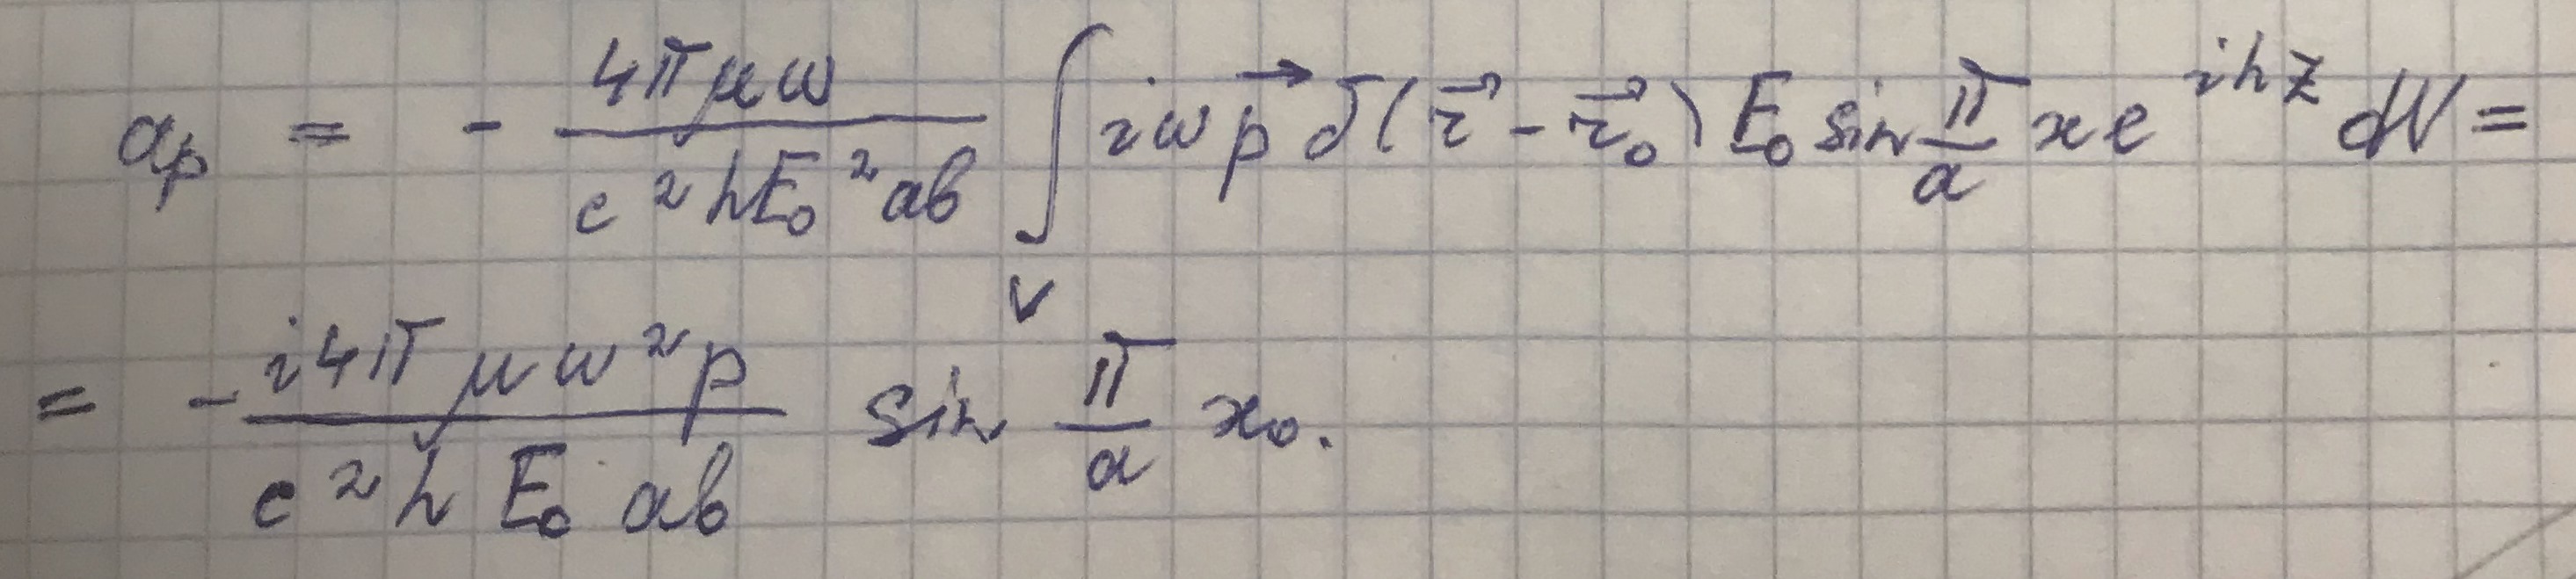 a_p = - \frac{4πμω}{c²hE₀²ab} ∫_V iω\vec{p} δ(\vec{r} - \vec{r}₀) E₀ sin \frac{π}{a} x e^{ihz} dV =
= - \frac{i4πμω²p}{c²h E₀ ab} sin \frac{π}{a} x₀.